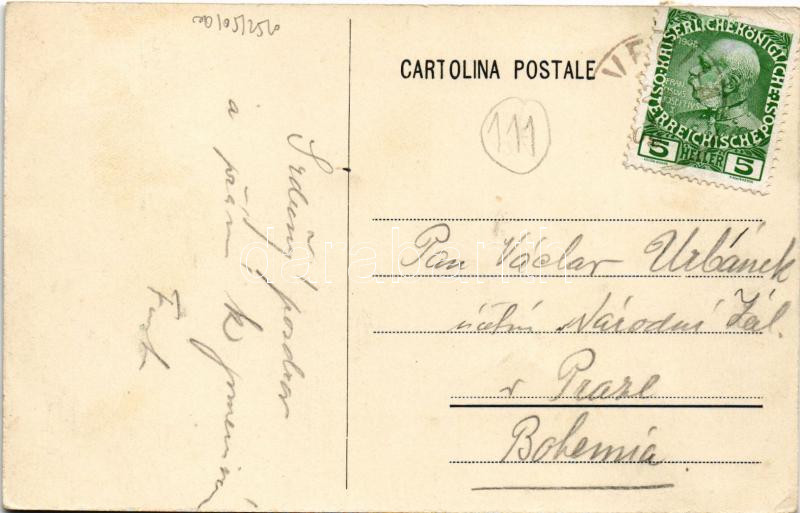 CARTOLINA POSTALE
111
KAISERLICHE KÖNIGLICHE
ÖSTERREICHISCHE POST
1908
5 HELLER 5
Srdečný pozdrav
a přání k jmeninám
Pan Václav Urbánek
účetní Národní Zál.
v Praze
Bohemia
darabanth